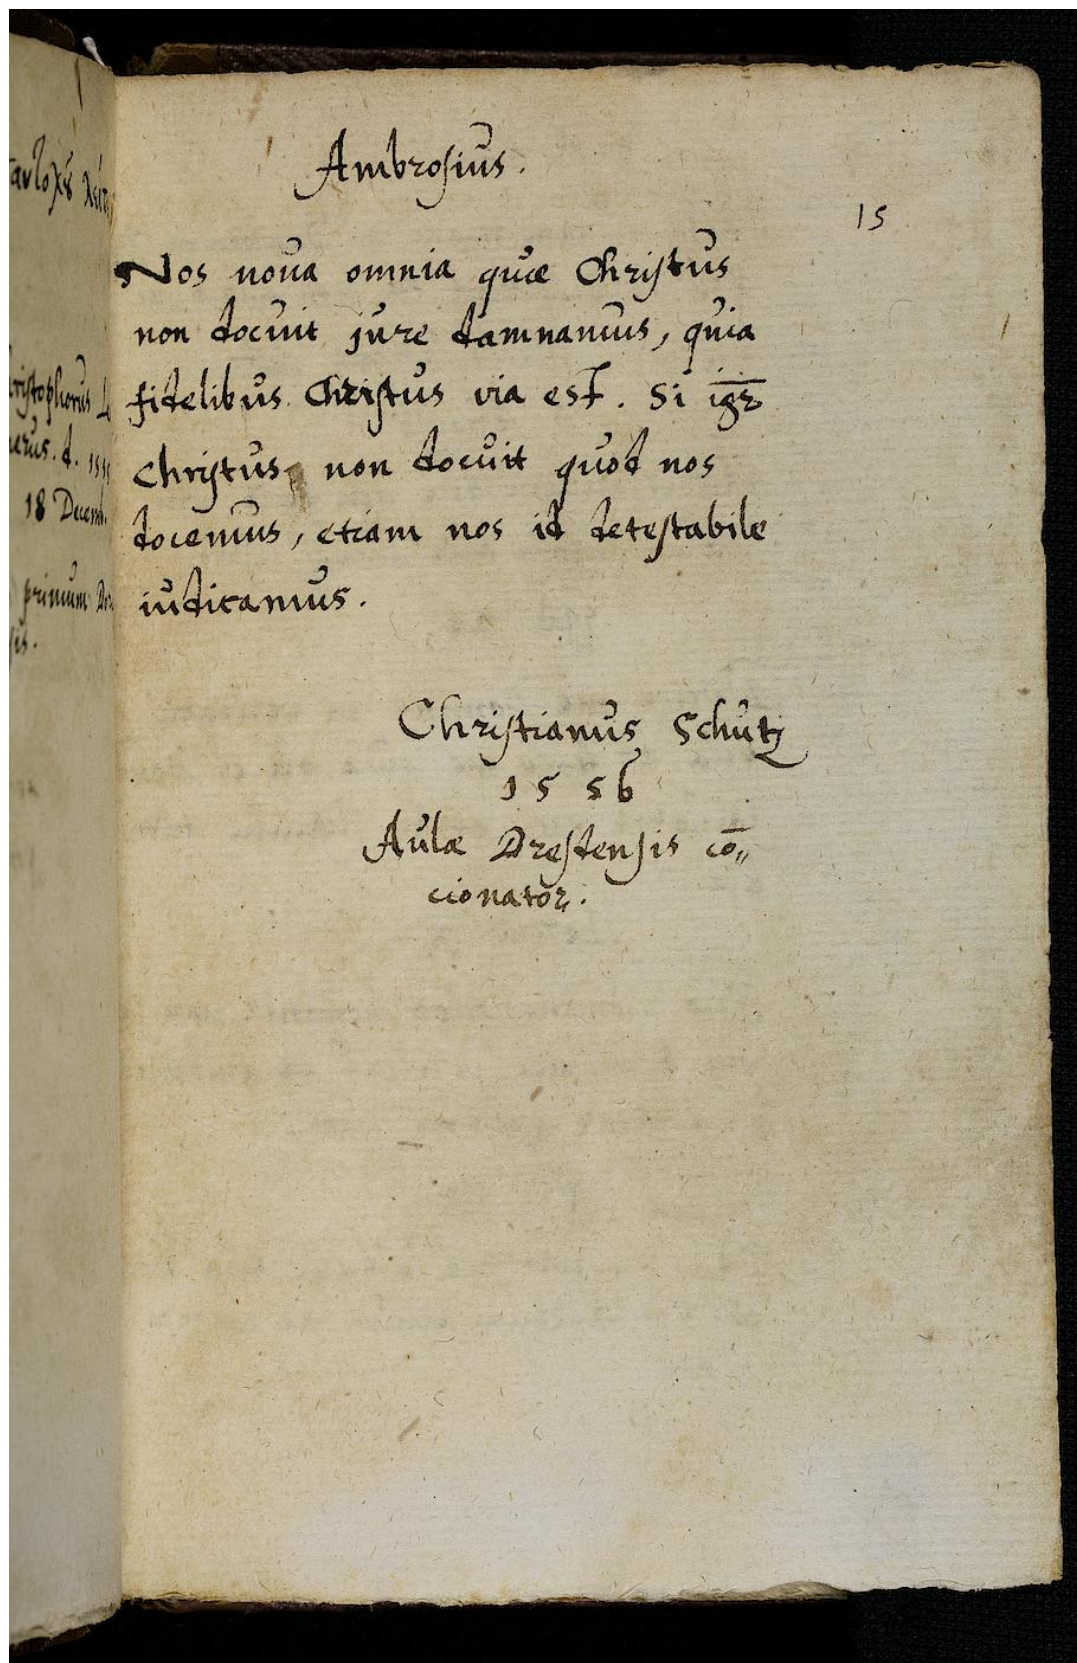 Ambrosius.
15
Nos noua omnia quæ Christus
non docuit jure damnamus, quia
fidelibus Christus via est. Si igr̄
Christus non docuit quod nos
docemus, etiam nos id detestabile
iudicamus.
Christianus Schutz
1556
Aulæ Dresdensis cō„
cionator.
18 Decemb.
primum
sis.